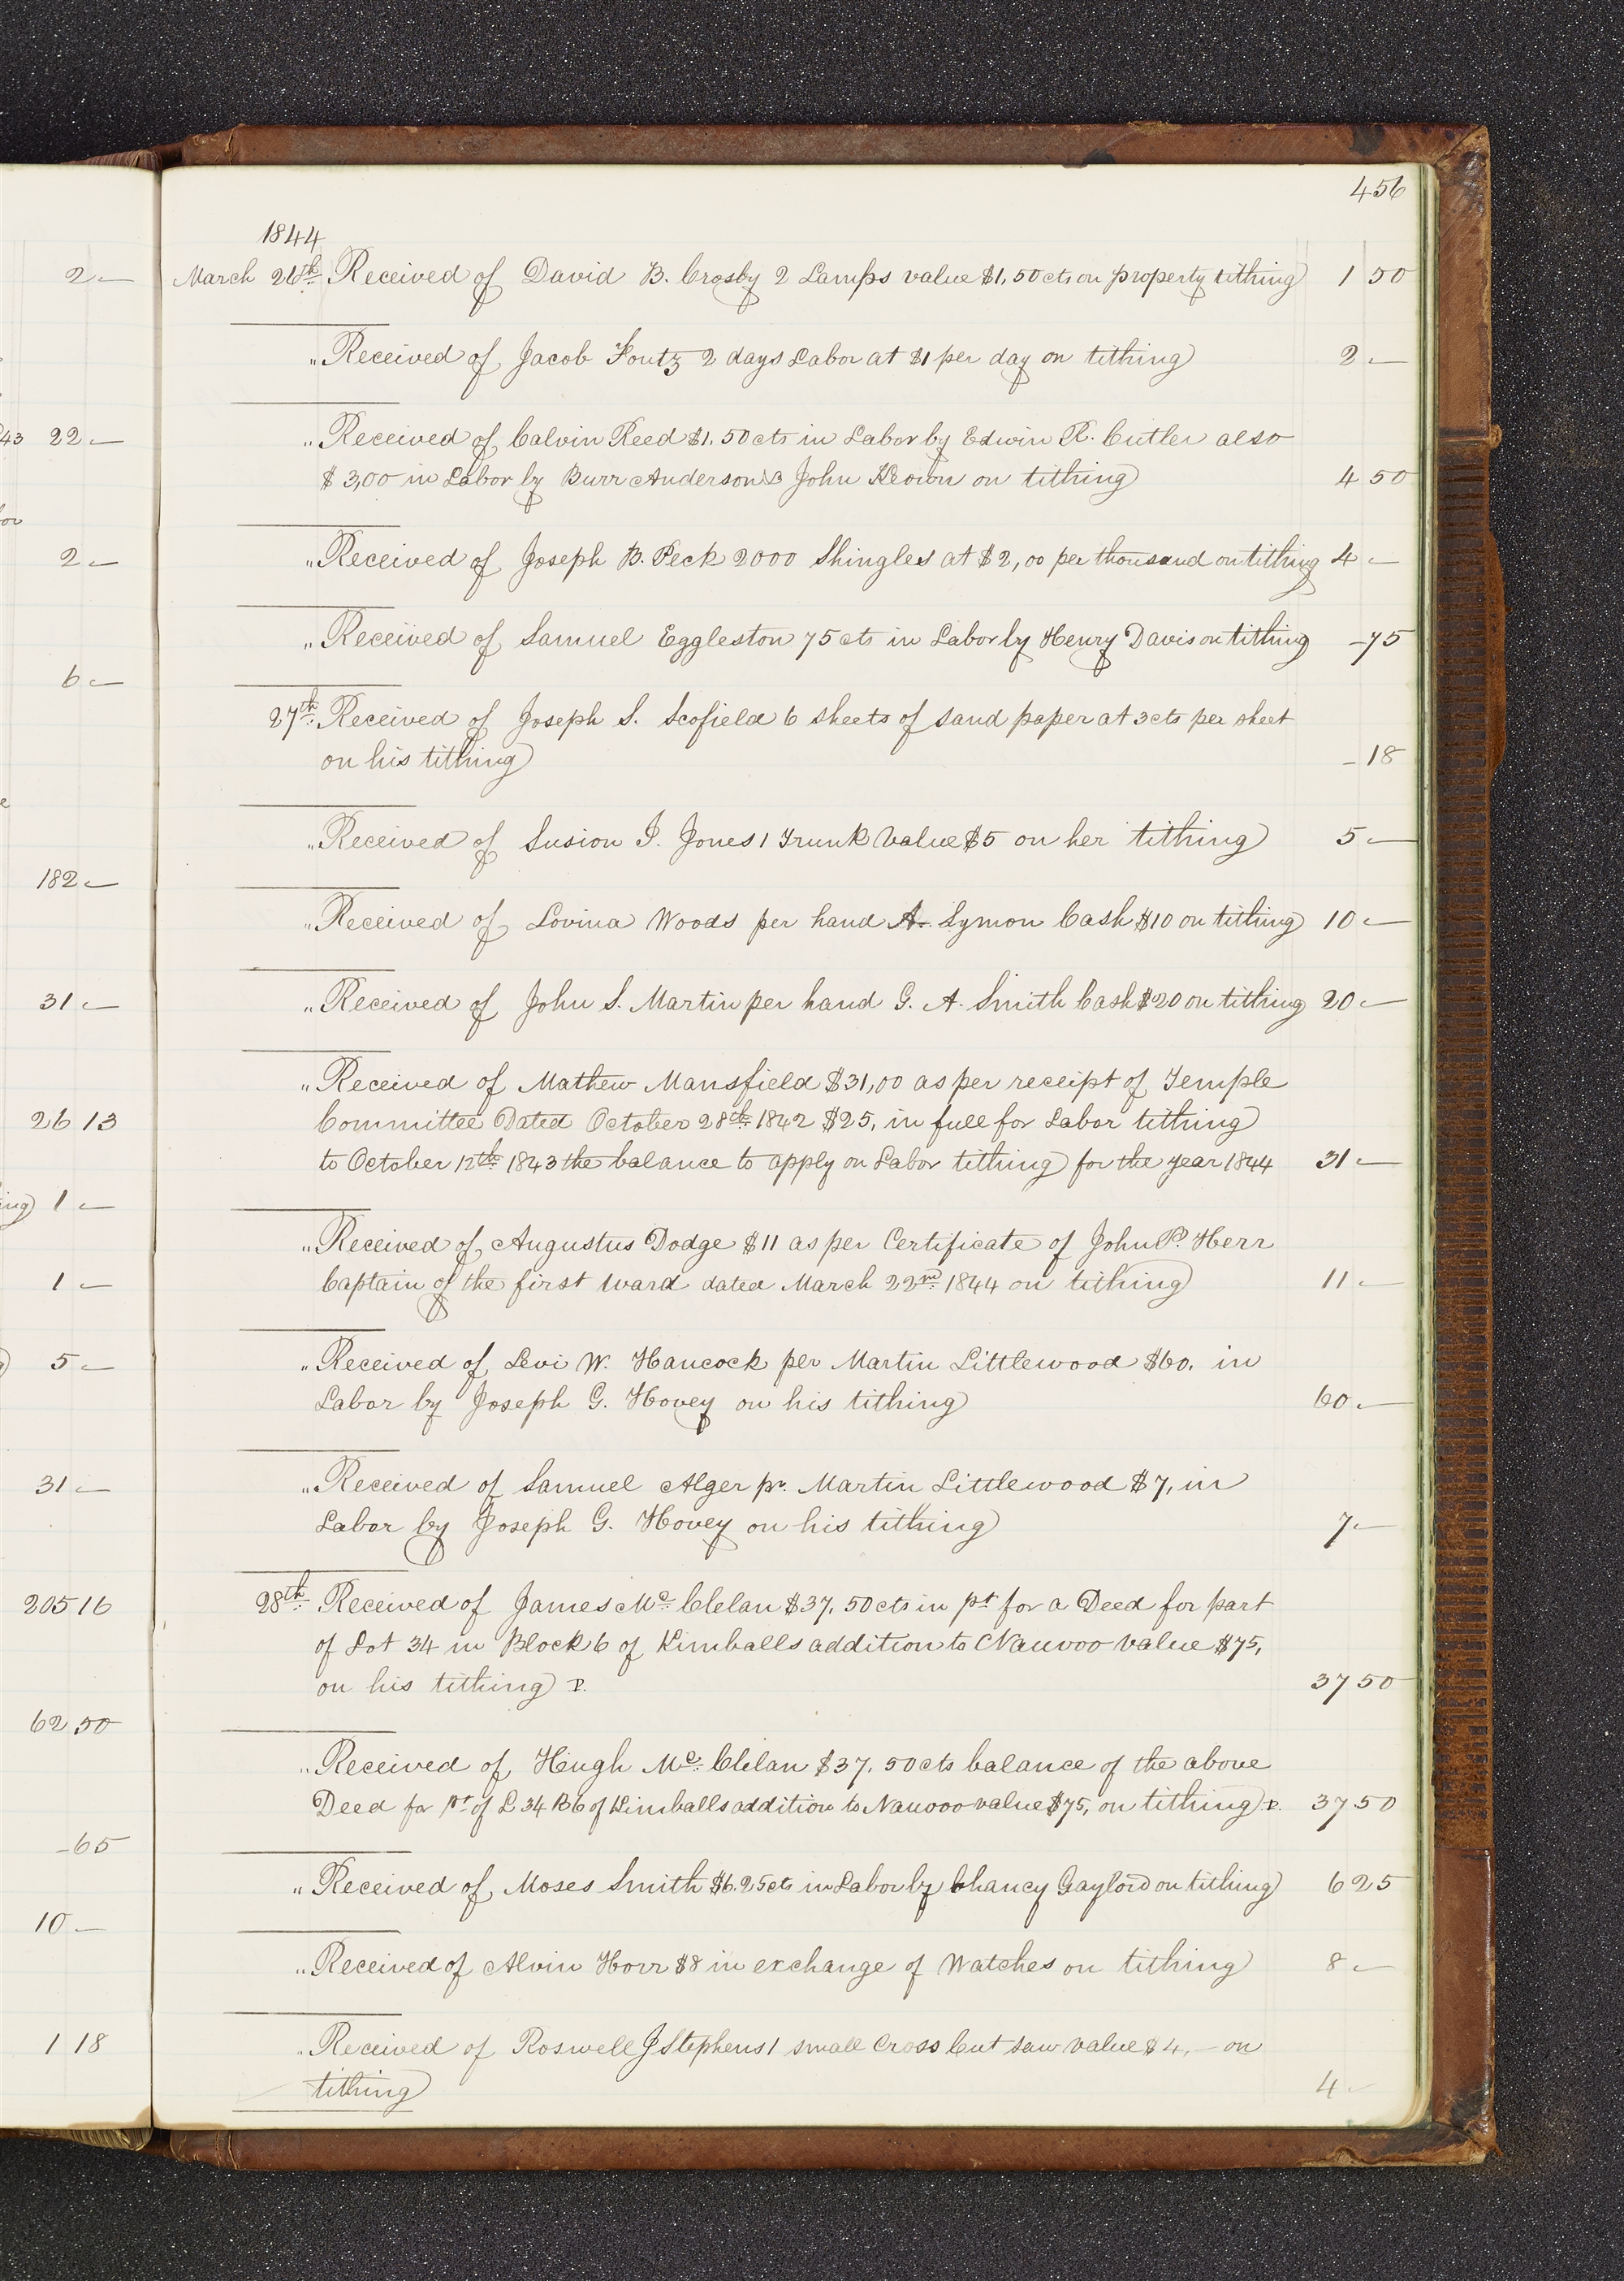 2 —
43 22 —
or
2 —
6 —
e
182 —
31 —
26 13
ing 1 —
1 —
5 —
31 —
205 16
62 50
- 65
10 —
1 18
456
1844
March 26th. Received of David B. Crosby 2 Lamps value $1,50 cts on property tithing 1 50
" Received of Jacob Foutz 2 days Labor at $1 per day on tithing 2 —
" Received of Calvin Reed $1.50 cts in Labor by Edwin R. Cutler also
$3,00 in Labor by Burr Anderson & John on tithing 4 50
" Received of Joseph B. Peck 2000 Shingles at $2,00 per thousand on tithing 4 —
" Received of Samuel Eggleston 75 cts in Labor by Henry Davis on tithing - 75
27th. Received of Joseph S. Scofield 6 sheets of sand paper at 3 cts per sheet
on his tithing - 18
" Received of Susion J. Jones 1 Trunk Value $5 on her tithing 5 —
" Received of Lovina Woods per hand A. Lymon Cash $10 on tithing 10 —
" Received of John S. Martin per hand G. A. Smith Cash $20 on tithing 20 —
" Received of Mathew Mansfield $31,00 as per receipt of Temple
Committee Dated October 28th. 1842 $25, in full for Labor tithing
to October 12th. 1843 the balance to apply on Labor tithing for the year 1844 31 —
" Received of Augustus Dodge $11 as per Certificate of John P. Herr
Captain of the first ward dated March 22nd. 1844 on tithing 11 —
" Received of Levi W. Hancock per Martin Littlewood $60. in
Labor by Joseph G. Hovey on his tithing 60 —
" Received of Samuel Alger pr. Martin Littlewood $7, in
Labor by Joseph G. Hovey on his tithing 7 —
28th. Received of James Mc. Clelan $37.50 cts in pt for a Deed for part
of Lot 34 in Block 6 of Kimballs addition to Nauvoo value $75,
on his tithing P. 37 50
" Received of Hugh Mc. Clelan $37.50 cts balance of the above
Deed for pt of L 34 B6 of Kimballs addition to Nauvoo value $75, on tithing P. 37 50
" Received of Moses Smith $6.25 cts in Labor by Chancy Gaylord on tithing 6 25
" Received of Alvin Horr $8 in exchange of Watches on tithing 8 —
" Received of Roswell J Stephens 1 small Cross Cut saw value $4, — on
tithing 4 -